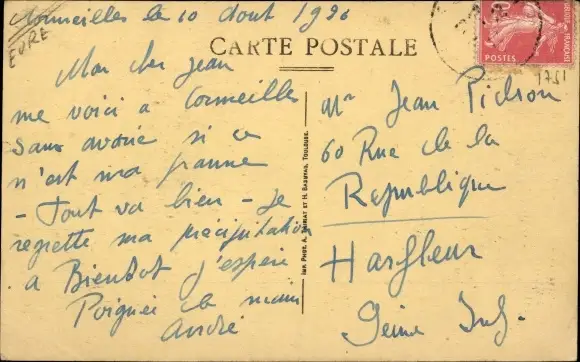 Cormeilles le 10 Aout 1926
EURE
CARTE POSTALE
POSTES
1751
Mon cher Jean
me voici a Cormeilles
sans avoir si ce
n'est ma panne
- Tout va bien - Je
regrette ma précipitation
a Bientot j'espère
Poignée de main
André
IMP. PHOT. A. THIRIAT ET H. BASUYAU, TOULOUSE.
Mr Jean Pichon
60 Rue de la
Republique
Harfleur
Seine Inf.